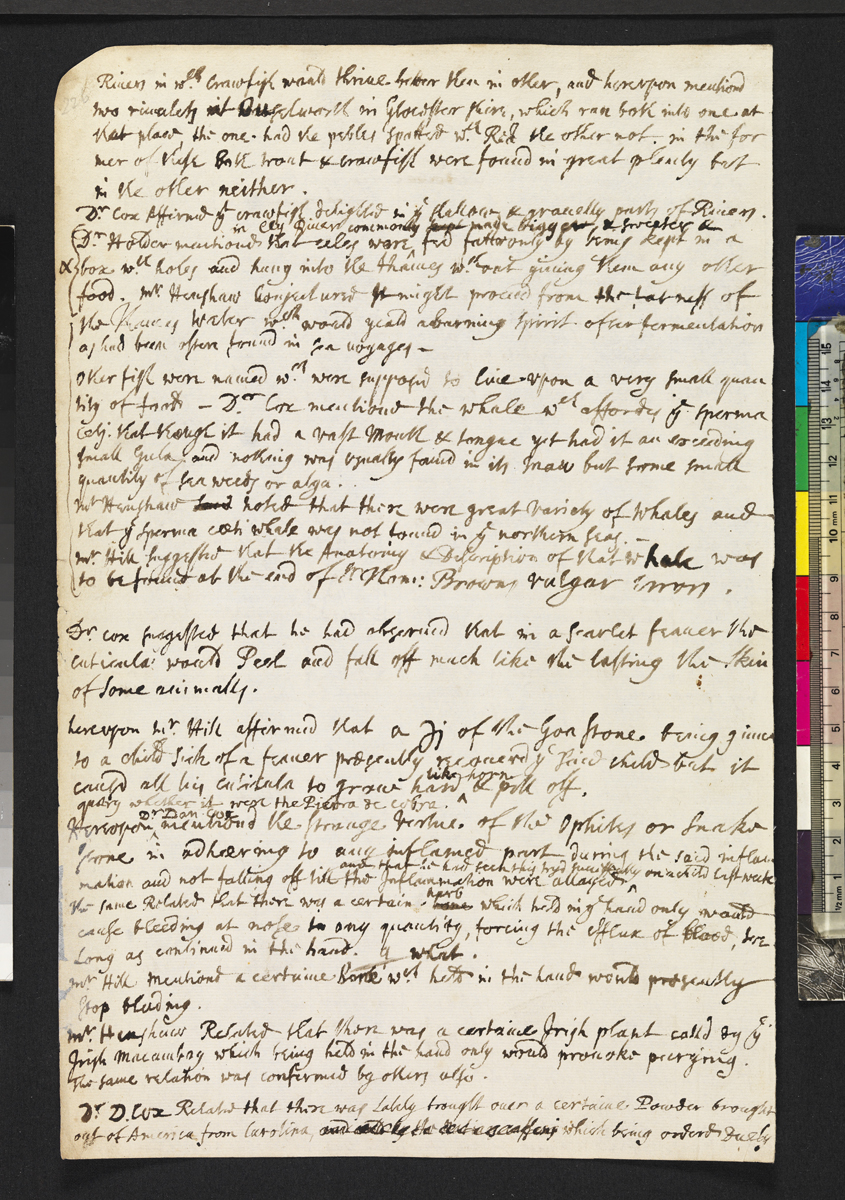 Rivers in wch crawfish would thrive better then in other, and hereupon mentiond
two rivulets at in Glocester shire, which ran both into one at
that place the one had the pebles spotted wth Red the other not. in the for
mer of these both trout & crawfish were found in great plenty but
in the other neither.
Dr Cox affirmd yt crawfish delighted in ye shallow & gravelly parts of Rivers.
in Ely River commonly made bigger, & sweeter &
Dr Holder mentiond that eeles were fed fatt only by being kept in a
box wth holes and hung into the thames wthout giving them any other
food. mr Henshaw Conjectured It might proceed from the fatness of
the Thames Water wch would yeald a burning spirit after fermentation
as had been often found in sea voyages -
other fish were named wch were supposd to live upon a very small quan
tity of food - Dr Cox mentiond the whale wch affordes ye sperma
ceti. that though it had a vast mouth & tongue yet had it an exceeding
small Gula, and nothing was usually found in its maw but some small
quantity of sea weeds or alga.
mr Henshaw noted that there were great variety of whales and
that ye sperma ceti whale was not found in ye northern seas. -
mr Hill suggested that the Anatomy & Description of that whale was
to be found at the end of Sr Thom: Browns vulgar errors.
Dr Cox suggested that he had observd that in a scarlet feaver the
cuticula would Peel and fall off much like the casting the skin
of some animalls.
hereupon mr Hill affirmd that a ʒj of the Goa stone being given
to a child sick of a feaver presently recoverd ye said child but it
causd all his cuticula to grow hard like horn & pill off.
query whether it were the Piedra de cobra.
Hereupon Dr Dan Cox mentiond the strange vertue of the Ophites or snake
stone in adhering to any inflamed part during the said inflam
and that he had seen this tryd succesfully on a child last week
mation and not falling off till the Inflammation were allayed
the same Related that there was a certain herb which held in ye hand only would
cause bleeding at nose to any quantity, forcing the efflux of blood, soe
Long as continued in the hand. q what.
mr Hill mentiond a certaine wch held in the hand would presently
stop bleeding.
mr Henshaw Related that there was a certaine Irish plant calld by ye
Irish Macambay which being held in the hand only would provoke purging.
the same relation was confirmed by others also.
Dr D. Cox Related that there was lately brought over a certaine Powder brought
out of America from Carolina, which being orderd Duely